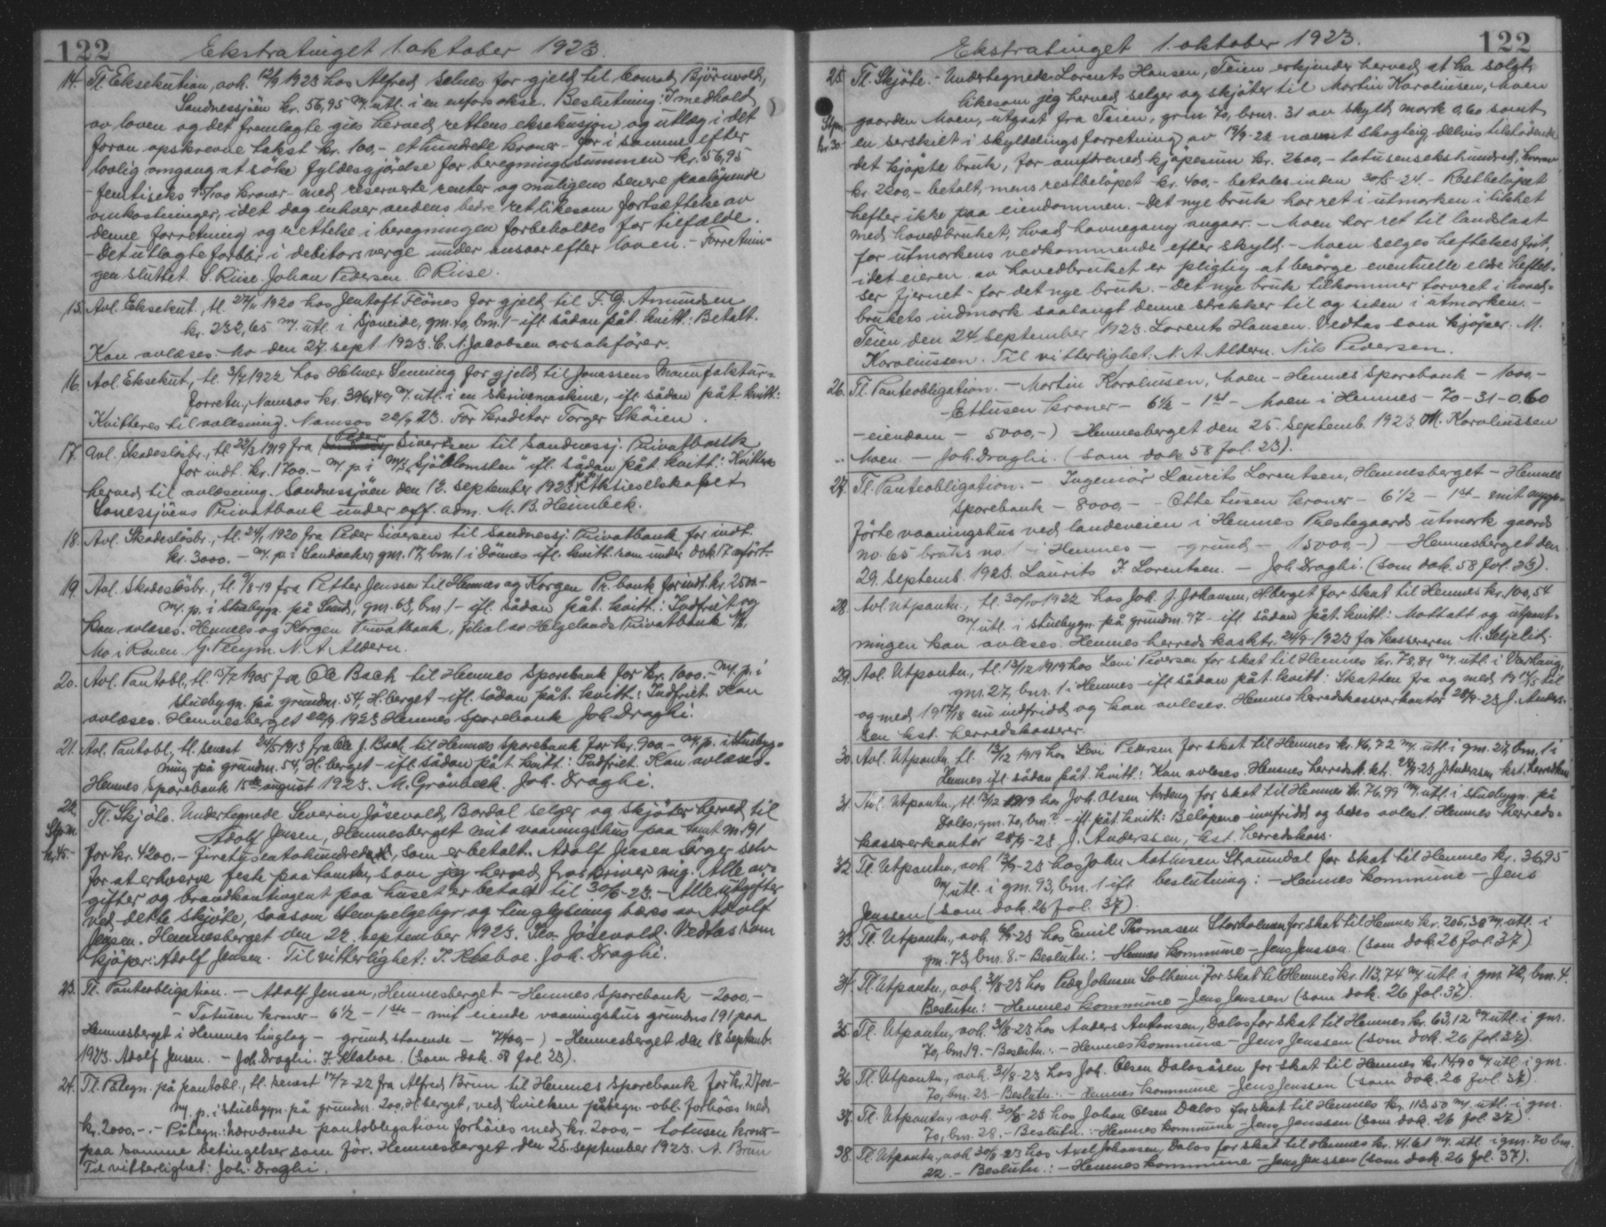 122
Ekstratinget 1. oktober 1923.
14. Tl. Eksekution, avh. 12/9 1923 hos Alfred Selnes for gjeld til Conrad Björnvold,
Sandnessjöen kr. 56,95 m/ utl. i en okse. Beslutning: I medhold
av loven og det fremlagte gis herved rettens eksekusjon og utlæg i det
foran opskrevne takst kr. 100,- et hundrede kroner - for i samme efter
lovlig omgang at söke fyldesgjörelse for beregningssummen kr. 56,95
- femtiseks 95/100 kroner med reserverte renter og muligens senere paalöpende
omkostninger, idet dog enhver andens bedre ret likesom fortsættelse av
denne forretning og rettelse i beregningen forbeholdes for tilfælde.
- Det utlagte forblir i debitors verge under ansvar efter loven. - Forretnin-
gen sluttet. S. Riise. Johan Pedersen O. Riise.
15. Avl. Eksekut., tl. 27/1 1920 hos Jentoft Flönes for gjeld til F. G. Amundsen
kr. 232,65 m/ utl. i Bjoneide, gm. 70, bm. 1 - ifl. sådan påt. kvitt.: Betalt.
Kan avlæses. Mo den 27. sept 1923. C. N. Jacobsen orsakförer.
16. Avl. Eksekut., tl. 3/7 1922 hos Helmer Senning for gjeld til Jonassens Manufaktur-
forretn., Namsos kr. 396,40 m/ utl. i en skrivemaskine, ifl. sådan påt. kvitt.:
Kvitteres til avlæsning. Namsos 22/9 23. For kreditor Torger Sköien.
17. Avl. Skadeslösbr., tl. 22/3 1919 fra Peder Sivertsen til Sandnessj. Privatbank
for indt. kr. 1700.- m/ p. i m/k "Sjöblomsten" ifl. sådan påt. kvitt.: Kvitteres
herved til avlæsning. Sandnessjöen den 12. september 1923. Aktieselskapet
Sannessjöens Privatbank under off. adm. M. B. Heimbek.
18. Avl. Skadeslösbr., tl. 24/1 1920 fra Peder Sivertsen til Sandnessj. Privatbank for indt.
kr. 3000.- m/ p. i Sandaaker, gm. 17, bm. 1 i Dönnes ifl. kvitt. som under dok 17 anfört.
19. Avl. Skadeslösbr., tl. 9/8-19 fra Petter Jenssen til Hemnes og Korgen Pr. bank for indt. kr. 2500-
m/ p. i stuebygn. på Sund, gm. 63, bm. 1 - ifl. sådan påt. kvitt.: Indfriet og
kan avlæses. Hemnes og Korgen Privatbank, filial av Helgelands Privatbank A/S,
Mo i Ranen G. Pleym. N. A. Aldern.
20. Avl. Pantobl., tl. 13/7 1905 fra Ole Bach til Hemnes Sparebank for kr. 1000.- m/ p. i
stuebygn. på grundnr. 54, H.berget - ifl. sådan påt. kvitt.: Indfriet. Kan
avlæses. Hemnesberget 22/9 1923 Hemnes Sparebank Joh. Draghi.
21. Avl. Pantobl., tl. senest 24/5 1913 fra Ole J. Bach til Hemnes Sparebank for kr. 900- m/ p. i stuebyg-
ning på grundnr. 54, H.berget - ifl. sådan påt. kvitt.: Indfriet. Kan avlæses.
Hemnes Sparebank 15de august 1923. M. Grönbech. Joh. Draghi.
22. Tl. Skjöte. Undertegnede Severin Jösevold, Bardal selger og skjöter herved til
Stpm. kr. 45.- Adolf Jensen, Hemnesberget mit vaaningshus paa tomt nr. 191
for kr. 4200.- firetusentohundredekr., som er betalt. Adolf Jensen sörger selv
for at erhverve feste paa tomten, som jeg herved fraskriver mig. Alle av-
gifter og brandkontingent paa huset er betalt til 30/6-23. - Alle utgifter
ved dette skjöte, saasom stempelgebyr og tinglysning bæres av Adolf
Jensen. Hemnesberget den 22. september 1923. Jösevold. Vedtas som
kjöper: Adolf Jensen. Til vitterlighet: P. Klæboe. Joh. Draghi.
23. Tl. Panteobligation. - Adolf Jensen, Hemnesberget - Hemnes Sparebank - 2000.-
- Totusen kroner - 6½ - 1ste - mit eiende vaaningshus grundnr. 191 paa
Hemnesberget i Hemnes tinglag - grund, staaende - ) - Hemnesberget den 18 septemb.
1923. Adolf Jensen. - Joh. Draghi. F. Klæboe. (Som dok. 58 fol. 23).
24. Tl. Påtegn. på pantobl., tl. senest 17/7-22 fra Alfred Brun til Hemnes Sparebank for kr. 2700.-
m/ p. i stuebygn. på grundnr. 200, H.berget, ved hvilken påtegn. obl. forhöies med
kr. 2000.-. - Påtegn.: Nærværende pantobligation forhöies med kr. 2000,- totusen kroner-
paa samme betingelser som för. Hemnesberget den 25. september 1923. A. Brun
Til vitterlighet: Joh. Draghi.
Ekstratinget 1. oktober 1923.
122
25. Tl. Skjöte. - Undertegnede Lorents Hansen, Teien erkjender herved at ha solgt
likesom jeg herved selger og skjöter til Martin Karoliussen, Moen
Stpm. kr. 30.- gaarden Moen, utgaat fra Teien, gr.nr. 70, brnr. 31 av skyld mark 0,60 samt
en særskilt i skyldelingsforretning av 17/9-22 nævnt skogteig delvis tilstötende
det kjöpte bruk, for omforenet kjöpesum kr. 2600,- totusensekshundrede kroner
kr. 2200,- betalt, mens restbelöpet kr. 400,- betales inden 30/5-24. - Restbelöpet
hefter ikke paa eiendommen. - Det nye bruk har ret i utmarken i likhet
med hovedbruket, hvad havnegang angaar. - Moen har ret til landslaat
for utmarkens vedkommende efter skyld. - Moen selges heftelsesfrit,
idet eieren av hovedbruket er pligtig at besörge eventuelle eldre heftel-
ser fjernet for det nye bruk. - Det nye bruk tilkommer torvret i hoved-
brukets indmark saalangt denne strekker til og siden i utmarken. -
Teien, den 24. september 1923. Lorents Hansen. Vedtas som kjöper. M.
Karoliussen. Til vitterlighet. N. A. Aldern. Nils Pedersen.
26. Tl. Panteobligation. - Martin Karoliussen, Moen - Hemnes Sparebank - 1000,-
- Ettusen kroner - 6½ - 1ste - Moen i Hemnes - 70 - 31 - 0,60
- eiendom - 5000,-) Hemnesberget den 25. septemb. 1923 M. Karoliussen
Moen. - Joh. Draghi. (Som dok. 58 fol. 23).
27. Tl. Panteobligation. - Ingeniör Laurits Lorentsen, Hemnesberget - Hemnes
Sparebank - 8000,- - Otte tusen kroner - 6½ - 1ste - mit opp-
förte vaaningshus ved landeveien i Hemnes Prestegaards utmark gaards
no. 65 bruks no. 1 - i Hemnes - grund - 15000,-) - Hemnesberget den
29. septemb. 1923. Laurits F. Lorentsen. - Joh. Draghi. (Som dok. 58 fol. 23).
28. Avl. Utpantn., tl. 30/10 1922 hos Joh. J. Johansen, H.berget for skat til Hemnes kr. 100,54
m/ utl. i stuebygn. på grundnr. 97 - ifl. sådan påt. kvitt.: Mottatt og utpant-
ningen kan avleses. Hemnes herreds kasktr. 24/9 1923 for kassereren M. Seljelid.
29. Avl. Utpantn., tl. 13/12 1919 hos Levi Pedersen for skat til Hemnes kr. 78,81 m/ utl. i Varhaug,
gnr. 27, bnr. 1 i Hemnes - ifl. sådan påt. kvitt.: Skatten fra og med 19 til
og med 19 17/18 er indfridd og kan avleses. Hemnes herredskassererkontor 28/9-23 J. Anders-
sen kst. herredskasserer.
30. Avl. Utpantn. tl. 13/12 1919 hos Levi Pedersen for skat til Hemnes kr. 16,72 m/ utl. i gm. 27, bm. 1 i
Hemnes ifl. sådan påt. kvitt.: Kan avleses. Hemnes herredsk. ktr. 28/9-23 J. Andersen kst. herredskas.
31. Avl. Utpantn., tl. 13/12 1919 hos Joh. Olsen for skat til Hemnes kr. 76,99 m/ utl. i stuebygn. på
Dalos, gm. 70, bm. ? - ifl. påt. kvitt.: Belöpene innfridd og bedes avlæst. Hemnes herreds-
kassererkontor 28/9-23 J. Anderssen, kst. herredskass.
32. Tl. Utpantn., avh. -23 hos John Mathisen Straumdal for skat til Hemnes kr. 36,95
m/ utl. i gm. 93, bm. 1 ifl. beslutning: - Hemnes kommune - Jens
Jenssen (som dok. 26 fol. 37).
33. Tl. Utpantn., avh. -23 hos Emil Thomasen Storholmen for skat til Hemnes kr. 206,38 m/ utl. i
gm. 73, bm. 8. - Beslutn.: - Hemnes kommune - Jens Jenssen. (som dok. 26 fol. 37)
34. Tl. Utpantn., avh. 31/8-23 hos Peder Johansen Solheim for skat til Hemnes kr. 113,74 m/ utl. i gm. 72, bm. 4.
Beslutn.: - Hemnes kommune - Jens Jenssen (som dok. 26 fol. 37).
35. Tl. Utpantn., avh. 31/8-23 hos Anders Antonsen, Dalos for skat til Hemnes kr. 63,12 m/ utl. i gm.
70, bm. 19. - Beslutn.: - Hemnes kommune - Jens Jenssen (som dok. 26 fol. 37).
36. Tl. Utpantn., avh. 31/8-23 hos Joh. Olsen Dalosåsen for skat til Hemnes kr. 14,90 m/ utl. i gm.
70, bm. 23. - Beslutn.: - Hemnes kommune - Jens Jenssen (som dok. 26 fol. 37).
37. Tl. Utpantn., avh. 30/8-23 hos Johan Olsen Dalos for skat til Hemnes kr. 118,50 m/ utl. i gm.
70, bm. 28. - Beslutn.: - Hemnes kommune - Jens Jenssen (som dok. 26 fol. 37).
38. Tl. Utpantn., avh. 30/8-23 hos Axel Johansen, Dalos for skat til Hemnes kr. 41,61 m/ utl. i gm. 70 bm.
22. - Beslutn.: - Hemnes kommune - Jens Jenssen (som dok. 26 fol. 37).